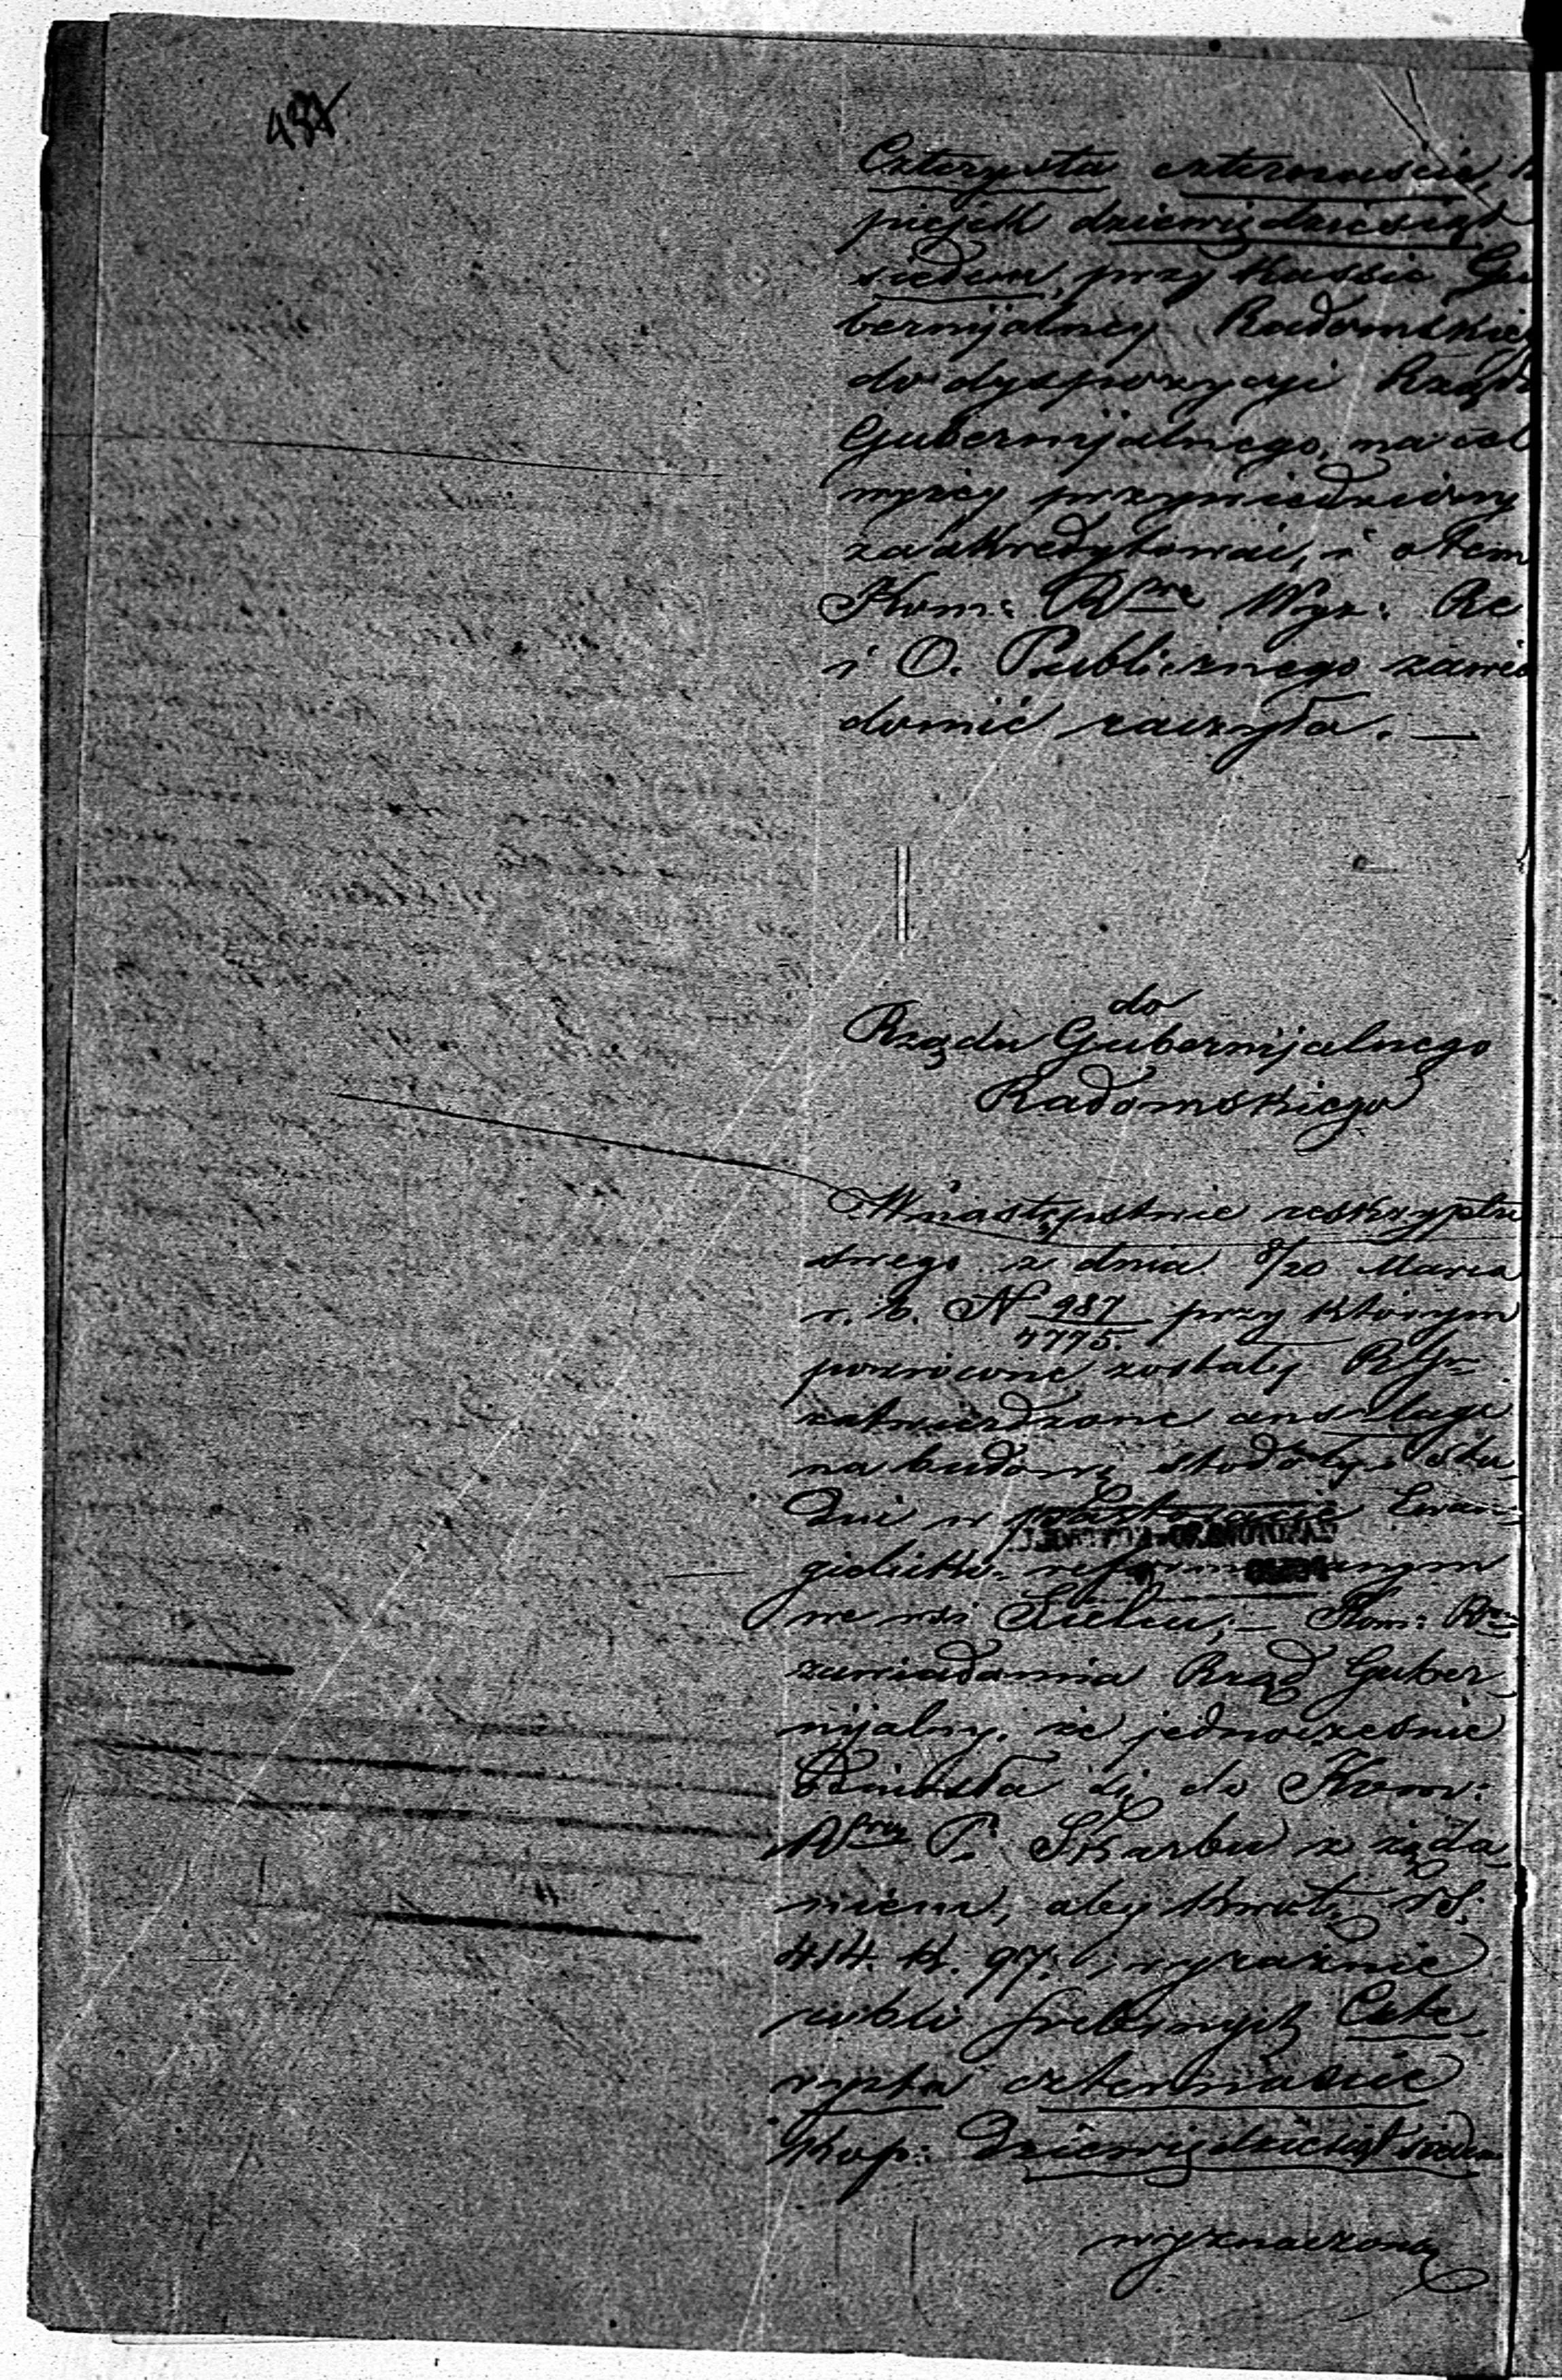 437
Czterysta czternaście, k
piejek dziewięćdziesiąt
siedem, przy Kassie Gu
bernijalnej Radomskiej
do dyspozycyi Rządu
Gubernijalnego, na cel
wyżej przywiedziony
zaakredytować, i o tem
Kom: Rwa Wyz: Re
i O. Publicznego zawia
domić raczyła. —
do
Rządu Gubernijalnego
Radomskiego
W następstwie reskryptu
swego z dnia 8/20 Marca
r. b. N 987/4775. przy którym
powrócone zostały
zatwierdzone anszlagi
na budowę stodoły i stu-
dni w Ewan-
gielicko-
we wsi Sielcu; — Kom: Rwa
zawiadamia Rząd Guber-
nijalny, że jednocześnie
odniosła się do Kom:
Rwej P. Skarbu z żąda-
niem, aby kwota rs.
414. k. 97. wyraźnie
rubli srebrnych Czte-
rysta czternaście
kop: dziewięćdziesiąt siedem
wyznaczoną